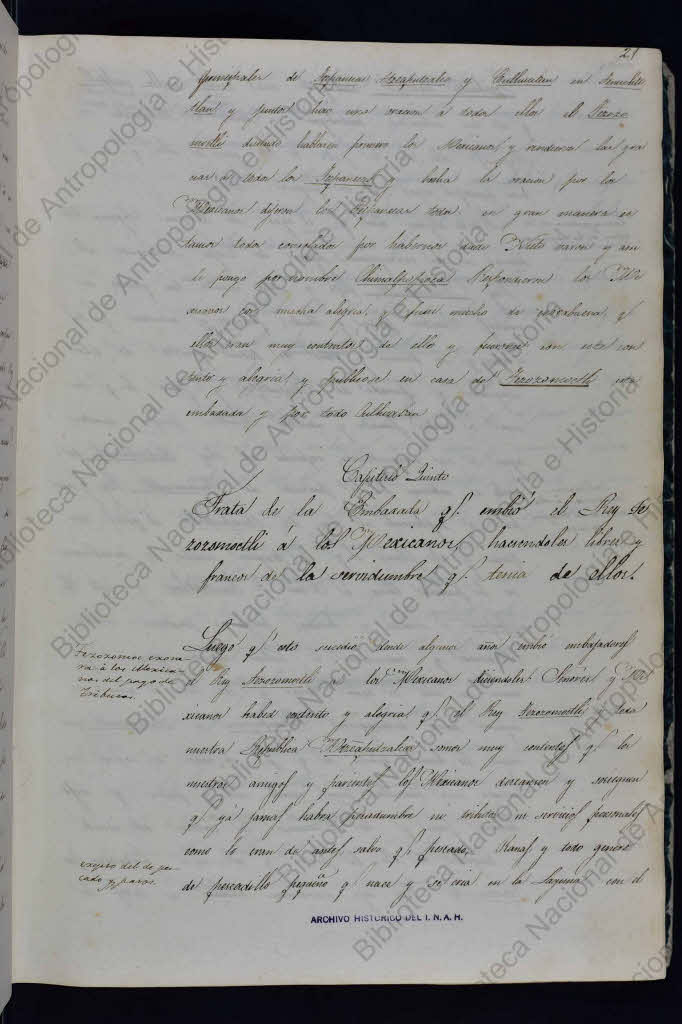 21
principales de Tepanecas Azcaputzalco y Culhuacan en Tenuchti
tlan y juntos hizo una oracion a todos ellos el Tezozo
moctli diciendo hablaren primero los Mexicanos y rindieron las gra
cias a todos los Tepanecas y hecha la oracion por los
Mexicanos dijeron los Tepanecas todos en gran manera es
tamos todos consolados por habernos dado Nieto varon y
le pongo por nombre Chimalpupuca Respondieron los Me
xicanos con mucha alegria q. fuese mucho de enorabuena q.
ellos eran muy contentos de ello y fueronse con este con
tento y alegria y publicose en casa de Tezozomoctli esta
embaxada y por todo Culhuacan
Capitulo Quinto
Trata de la Embaxada q. embió el Rey Te
zozomoctli á los Mexicanos haciendolos libres y
francos de la servidumbre q. tenia de ellos.
Tezozomoc exone
ra á los Mexica
nos del pago de
tributos.
Luego q. esto sucedió desde algunos años embió embaxadores
el Rey Tezozomoctli a los Mexicanos diciendoles Señores y Me
xicanos habed contento y alegria q. el Rey Tezozomoctli toda
nuestra Republica Azcaputzalco somos muy contentos q. los
nuestros amigos y parientes los Mexicanos descansen y sosieguen
q. ya jamas habra pesadumbre ni tributo ni servicios personales
como lo eran de antes salvo q. pescado, Ranas y todo genero
de pescadillo pequeño q. nace y se cria en la Laguna con el
del de pes
cado y patos.
ARCHIVO HISTORICO DEL I. N. A. H.
Biblioteca Nacional de Antropología e Historia